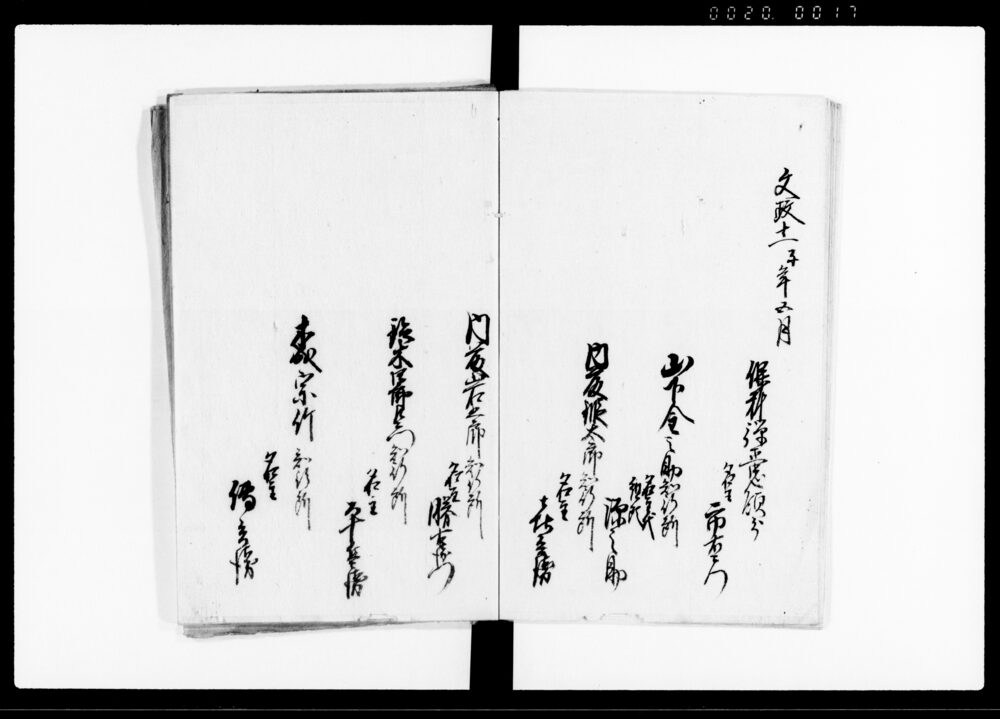 0020. 0017
文政十一子年五月
保科弾正忠領分
名主
市右衛門
山下金之助知行所
名主代
組頭
源之助
内藤振太郎知行所
名主
喜兵衛
内藤岩五郎知行所
名主
勝右衛門
鈴木
知行所
名主
平兵衛
宗竹
知行所
名主
傳兵衛